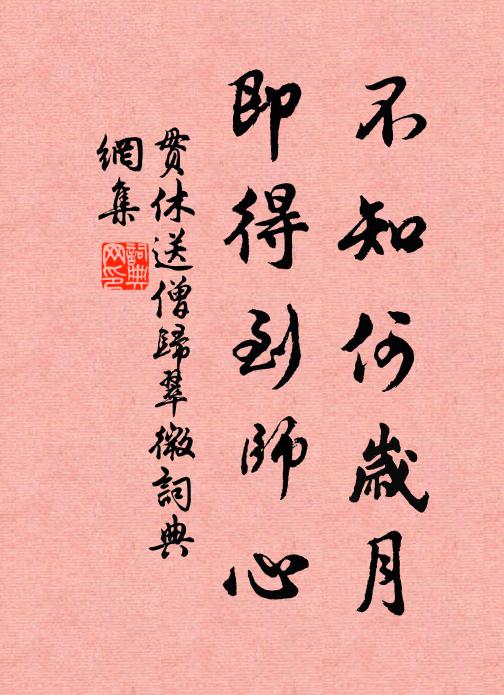 不知何歲月
即得到師心
貫休送僧歸翠微詞典
網集
詞典
网印